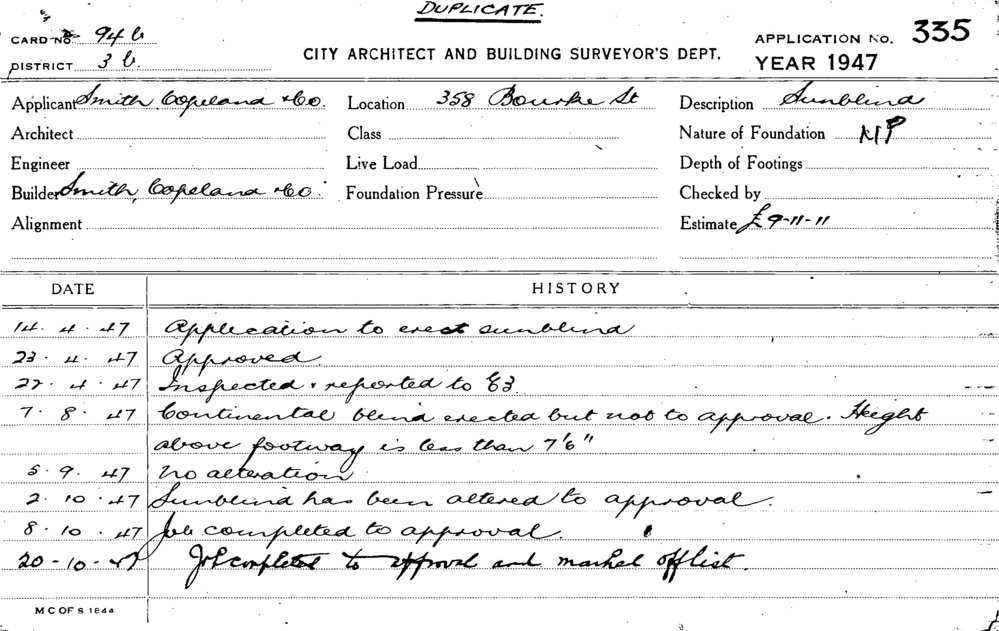 DUPLICATE.
CARD No. 94b
CITY ARCHITECT AND BUILDING SURVEYOR'S DEPT.
APPLICATION No. 335
DISTRICT 3b
YEAR 1947
Applicant Smith, Copeland & Co. Location 358 Bourke St Description Sunblind
Architect Class Nature of Foundation
Engineer Live Load Depth of Footings
Builder Smith, Copeland & Co. Foundation Pressure Checked by
Alignment Estimate £9-11-11
DATE HISTORY
14. 4. 47 Application to erect sunblind
23. 4. 47 Approved
22. 4. 47 Inspected & reported to E3.
7. 8. 47 Continental blind erected but not to approval. Height
above footway is less than 7'6"
5. 9. 47 No alteration
2. 10. 47 Sunblind has been altered to approval.
8. 10. 47 Job completed to approval.
20-10-47 Job completed to approval and marked off list.
M C OF S 1844